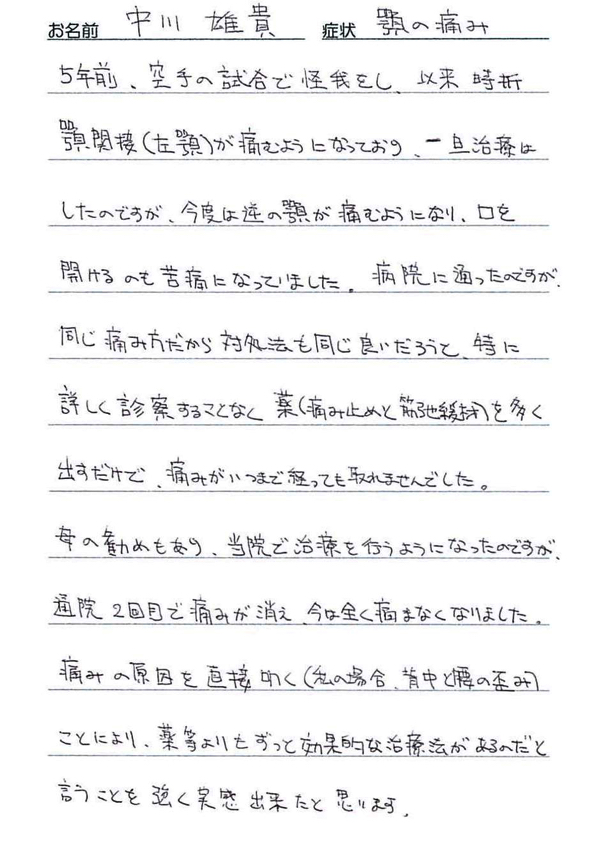 お名前 中川 雄貴 症状 顎の痛み
5年前、空手の試合で怪我をし、以来 時折
顎関接(左顎)が痛むようになっており、一旦治療は
したのですが、今度は逆の顎が痛むようになり、口を
開けるのも苦痛になっていました。病院に通ったのですが、
同じ痛み方だから対処法も同じ良いだろうと、特に
詳しく診察することなく薬(痛み止めと筋弛緩剤)を多く
出すだけで、痛みがいつまで経っても取れませんでした。
母の勧めもあり、当院で治療を行うようになったのですが、
通院2回目で痛みが消え 今は全く痛まなくなりました。
痛みの原因を直接叩く(私の場合、背中と腰の歪み)
ことにより、薬等よりもずっと効果的な治療法があるのだと
言うことを強く実感出来たと思います。